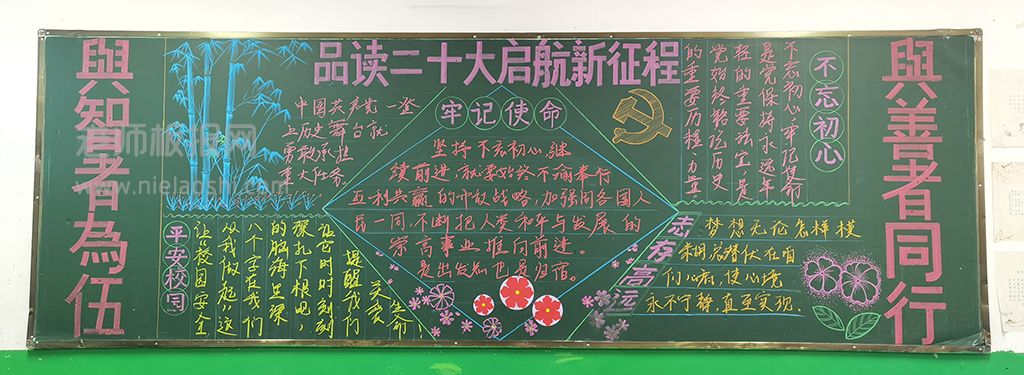 與知智者為伍
品读二十大启航新征程
與善者同行
中国共产党一登
上历史舞台就
勇敢承担
重大任务
牢记使命
坚持不忘初心,继
续前进,就要始终不渝奉行
互利共赢的开放战略,加强同各国人
民一同,不断把人类和平与发展的
崇高事业推向前进。
是出发点也是归宿。
不忘初心
不忘初心,牢记使命
是党保持永远年
轻的重要法宝,是
党始终铭记历史
的重要历程,力量
平安校园
让"校园安全
从我做起",这
八个字在我们
的脑海里深
深扎下根吧,
让它时时刻刻
提醒我们
关爱
生命!
志存高远
梦想无论怎样模
糊,总潜伏在我
们心底,使心境
永不宁静,直至实现.
老师板报网
www.nielaoshi.com